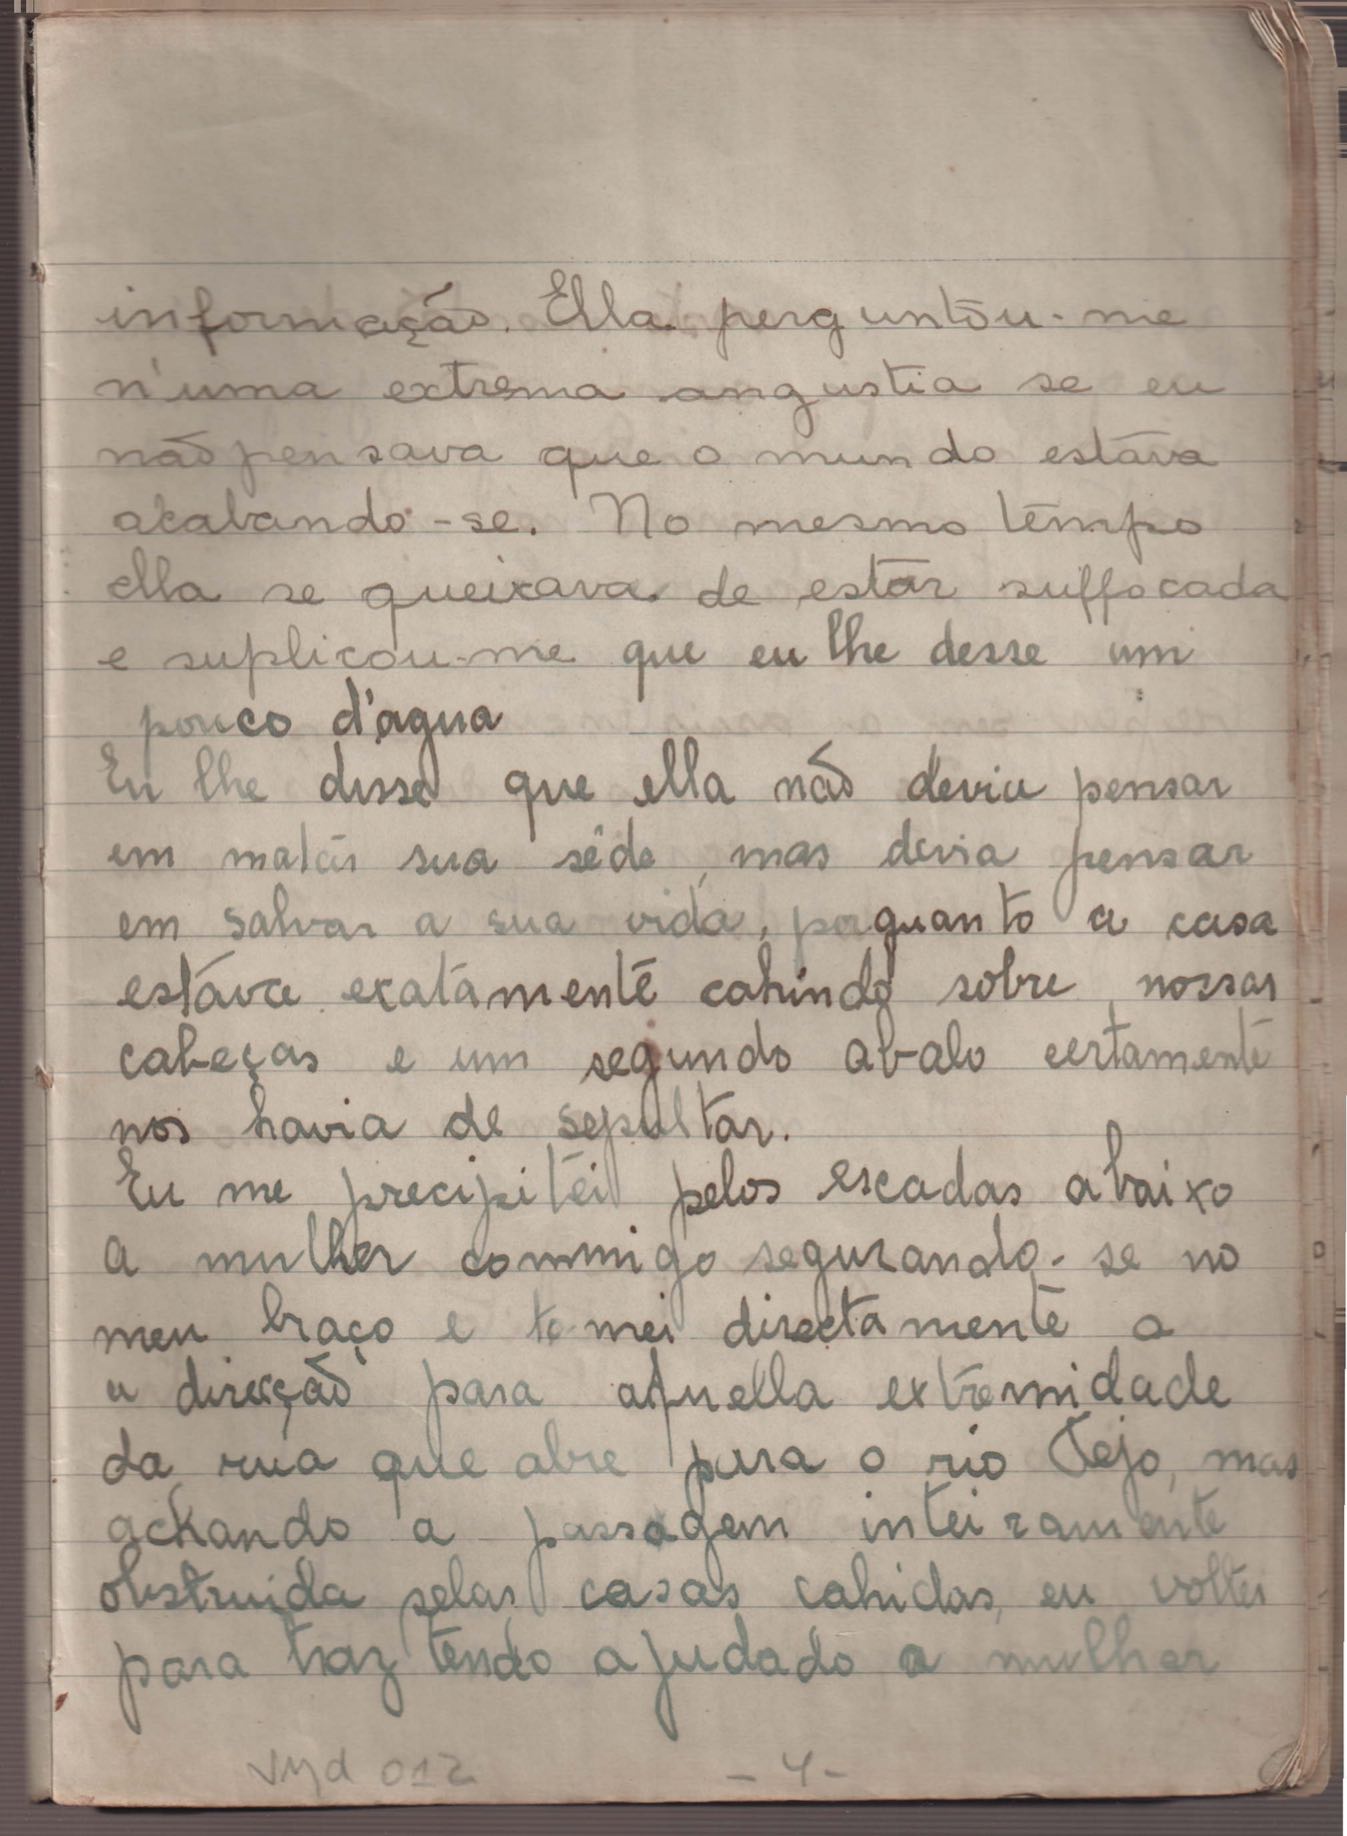 informação. Ella perguntou-me
n'uma extrema angustia se eu
não pensava que o mundo estava
acabando-se. No mesmo tempo
ella se queixava de estar suffocada
e suplicou-me que eu lhe desse um
pouco d'agua
Eu lhe disse que ella não devia pensar
em matar sua sêde, mas devia pensar
em salvar a sua vida, porquanto a casa
estava exatamente cahindo sobre nossas
cabeças e um segundo abalo certamente
nos havia de sepultar.
Eu me precipitei pelos escadas abaixo
a mulher commigo segurando-se no
meu braço e tomei directamente a
a direcção para aquella extremidade
da rua que abre para o rio Tejo, mas
achando a passagem inteiramente
obstruida pelas casas cahidas, eu voltei
para traz tendo ajudado a mulher
012
-4-